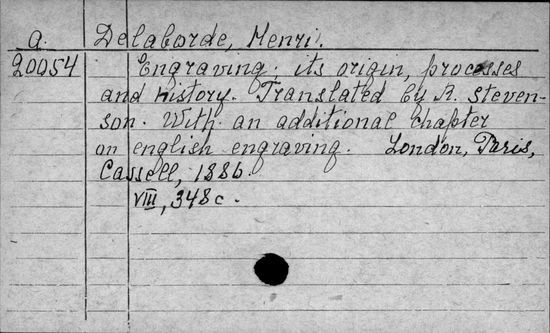 a. Delaborde, Henri.
20054 Engraving; its origin, processes
and history. Translated by R. Steven-
son. With an additional chapter
on english engraving. London, Paris,
Cassell, 1886.
VIII, 348 c.